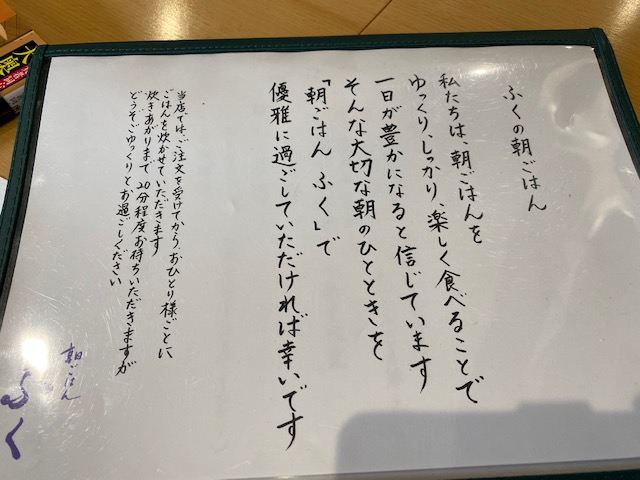 ふくの朝ごはん
私たちは、朝ごはんを
ゆっくり、しっかり、楽しく食べることで
一日が豊かになると信じています
そんな大切な朝のひとときを
「朝ごはん ふく」で
優雅に過ごしていただければ幸いです
当店では、ご注文を受けてから、おひとり様ごとに
ごはんを炊かせていただきます
炊きあがりまで20分程度お待ちいただきますが
どうぞごゆっくりとお過ごしください
朝ごはん
ふく